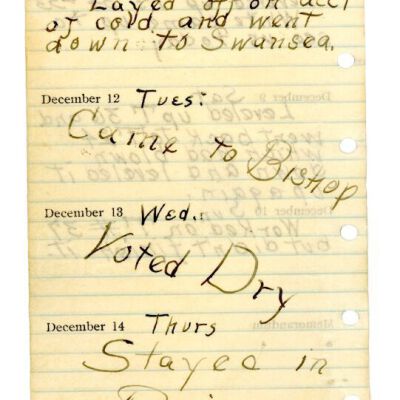 Layed off on acct
of cold and went
down to Swansea.
December 12 Tues:
Came to Bishop
December 13 Wed.
Voted Dry
December 14 Thurs
Stayed in